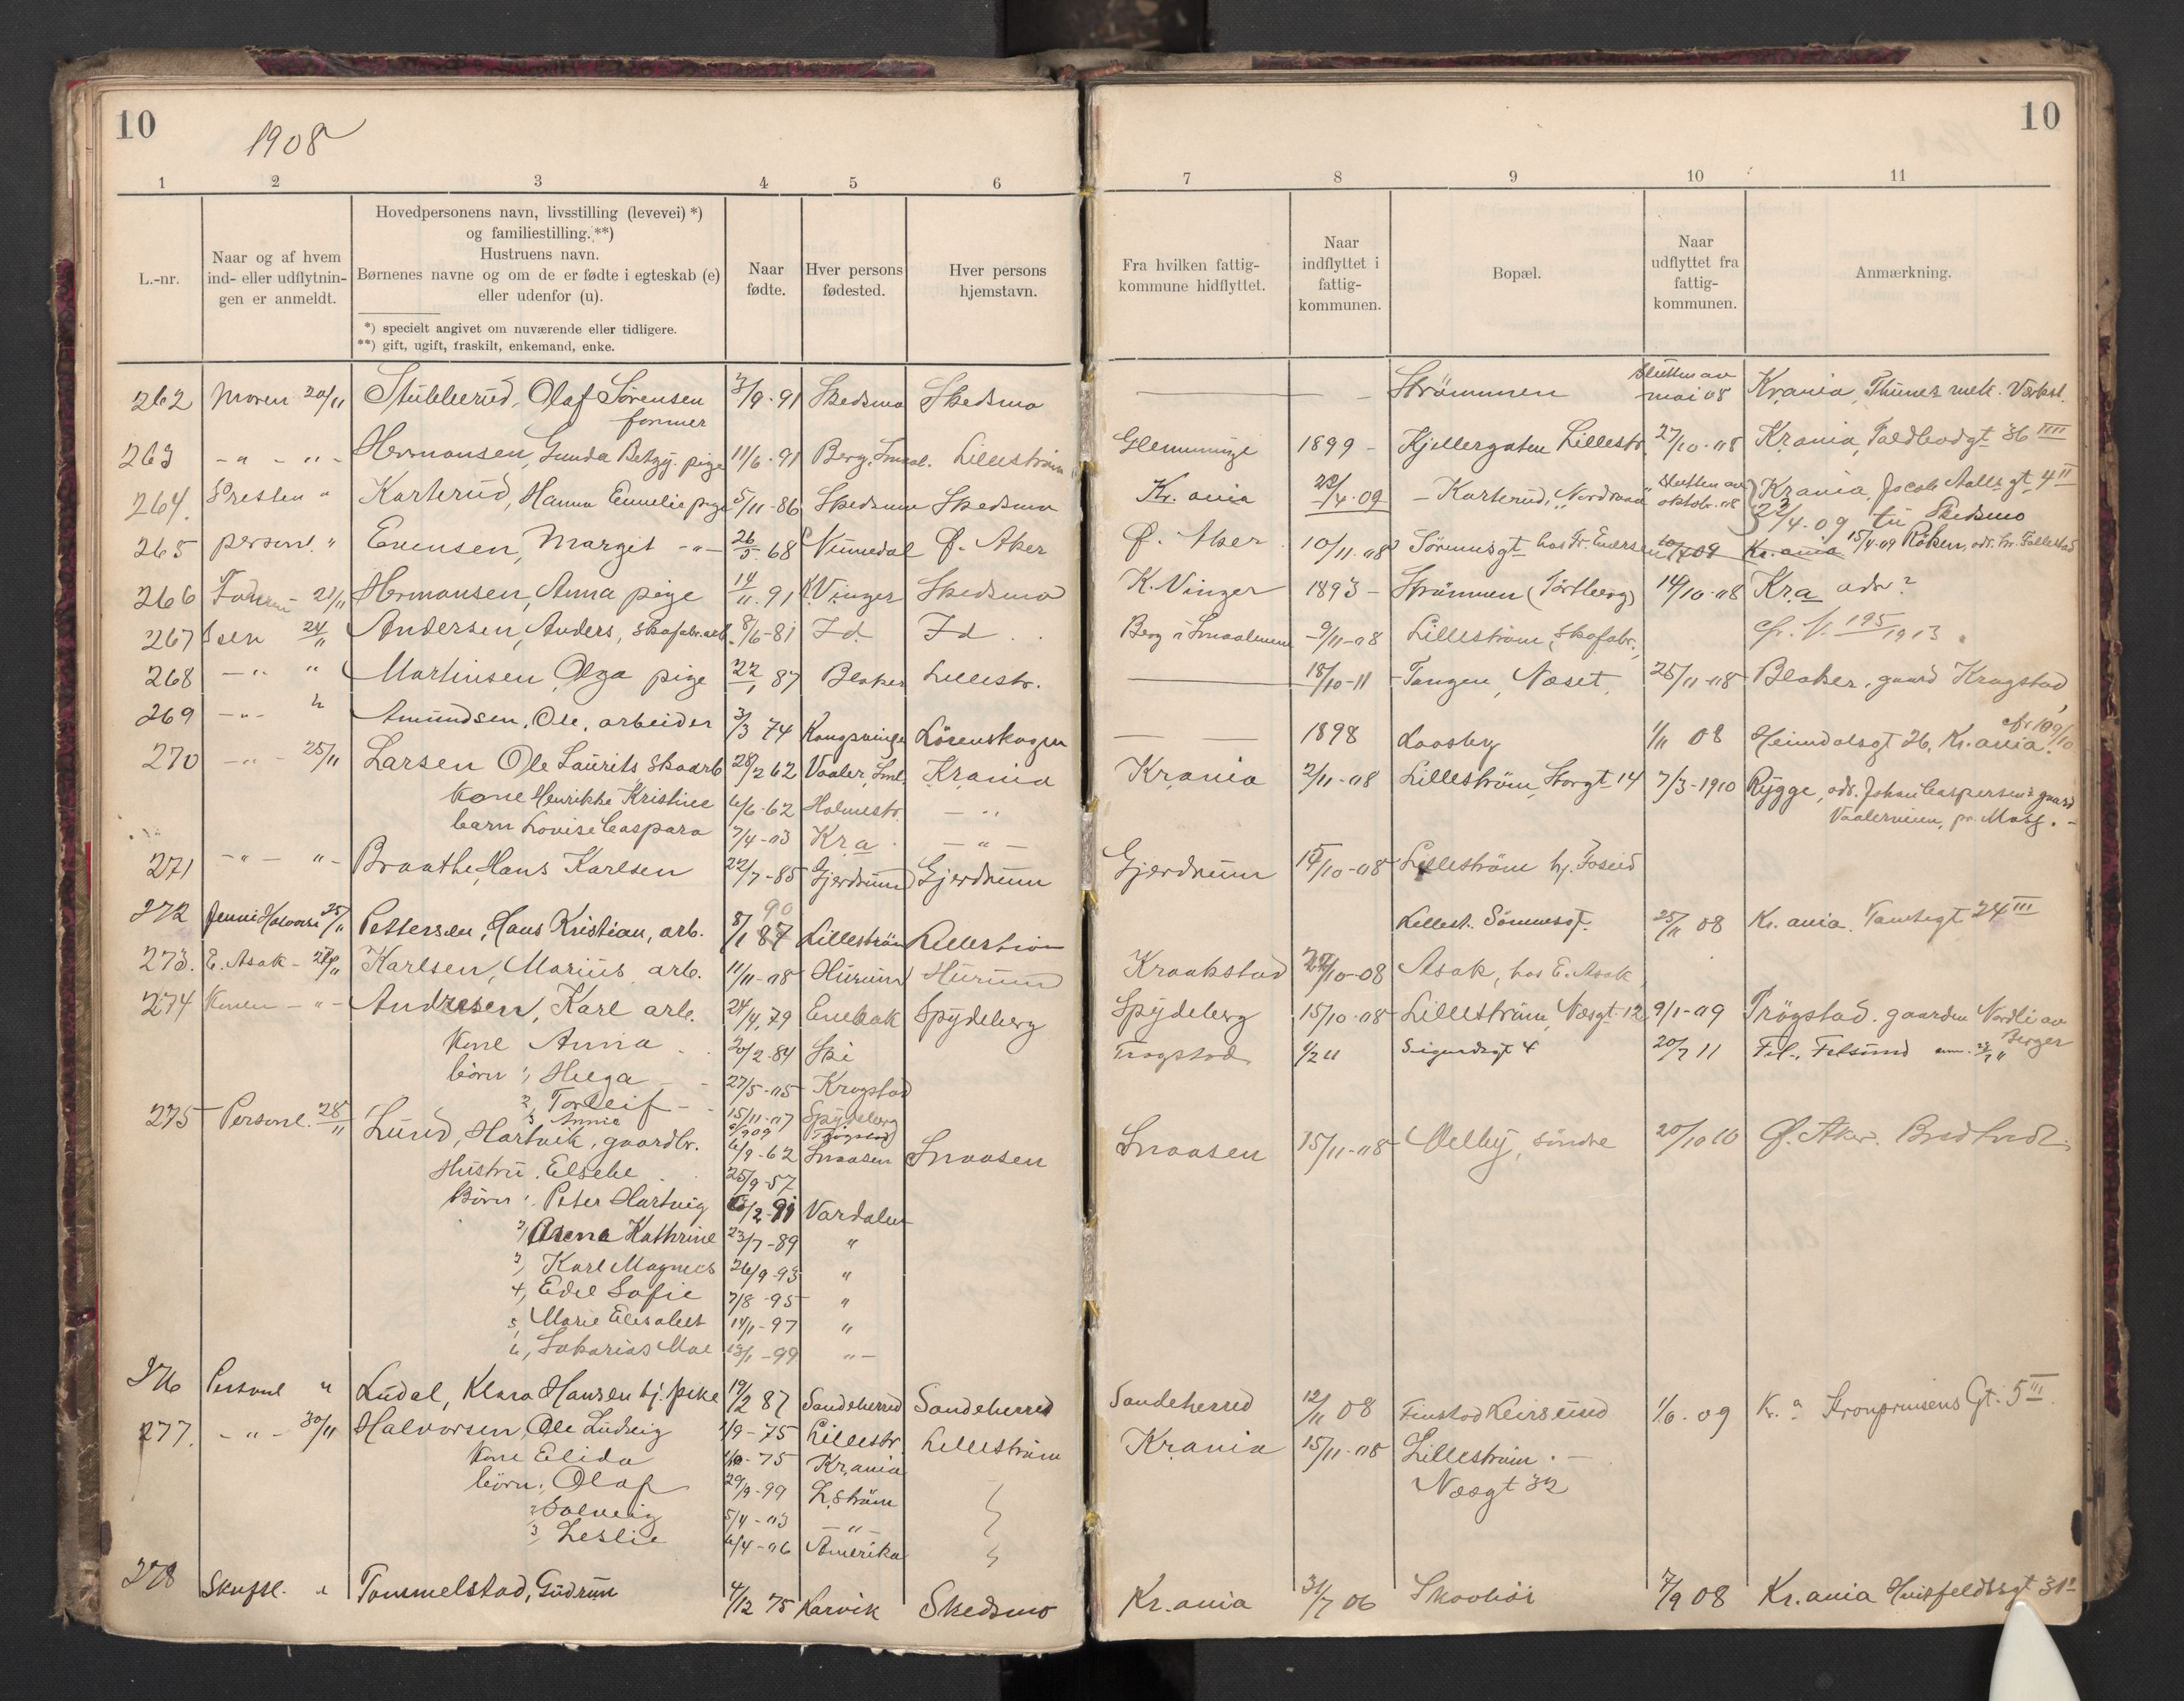 10
1908
10
1 2 3 4 5 6 7 8 9 10 11
L.-nr.
Naar og af hvem
ind- eller udflytnin-
gen er anmeldt.
Hovedpersonens navn, livsstilling (levevei) *)
og familiestilling. **)
Hustruens navn.
Børnenes navne og om de er fødte i egteskab (e)
eller udenfor (u).
*) specielt angivet om nuværende eller tidligere.
**) gift, ugift, fraskilt, enkemand, enke.
Naar
fødte.
Hver persons
fødested.
Hver persons
hjemstavn.
Fra hvilken fattig-
kommune hidflyttet.
Naar
indflyttet i
fattig-
kommunen.
Bopæl.
Naar
udflyttet fra
fattig-
kommunen.
Anmærkning.
262 Moren 20/11 Stubberud, Olaf Sørensen 3/9-91 Skedsmo Skedsmo — Strømmen Slutten av
former mai 08 Kr.ania, Thunes mek. Værkst.
263 -"- -"- Hermansen, Gunda Betzy. pige 11/6-91 Berg. Smaal. Lillestrøm Glemminge 1899 - Kjellergaten Lillestr. 27/10-08 Kr.ania, Toldbodgt 36 IIII
264. Presten " Karterud, Hanna Emmelie pige 5/11-86 Skedsmo Skedsmo Kr.ania 22/4-09 - Karterud, Nordraaa Slutten av
oktob. 08 Kr.ania, Jacob Aalls gt 4 II
22/4-09 til Skedsmo
265 personl. " Evensen, Margit -"- 26/5 68 Nummedal Ø. Aker Ø. Aker 10/11-08 Sørumsgt hos Fr. Endersen 10/4 09 Kr.ania 15/4-09 Røken,
266 Faderen - 21/11 Hermansen, Anna pige 14/11-91 K. Vinger Skedsmo K. Vinger 1893 - Strømmen 14/10-08 Kr.a adr?
267 24/11 Andersen, Anders, skofabr.arb. 8/6-81 Id. Id Berg i Smaalenene 9/11-08 Lillestrøm, skofabr. cfr. 195/1913
268 -"- " Martinsen, Olga pige 22/1 87 Blaker Lillestr. — 18/10-11 - Tangen, Næset, 25/11-08 Blaker, gaard Krogstad
269 -"- " Amundsen, Ole, arbeider 3/3 74 Kongsvinger Lørenskogen — 1898 Laasby 1/11 08 Heimdalsgt 26, Kr.ania. cfr 109/10
270 -"- 25/11 Larsen Ole Laurits skoarb 28/2 62 Vaaler, Sml. Kr.ania Kr.ania 2/11-08 Lillestrøm, Storgt 14 7/3-1910 Rygge, adr. Johan Caspersens gaard
Kone Henrikke Kristine 6/6-62 Holmestr. -"- Vaalerveien, pr. Moss.
barn Lovise Caspara 7/4-03 Kr.a -"-
271 -"- "- Braathe, Hans Karlsen 22/7-85 Gjerdrum Gjerdrum Gjerdrum 15/10-08 Lillestrøm hj. Foseid
272 Jenni Halvorsen 25/11 Pettersen, Hans Kristian, arb. 8/1 87 90 Lillestrøm Lillestrøm Lillest. Sørumsgt. 25/11 08 Kr.ania. Tomtegt 24 III
273. E. Asak - 27/11 Karlsen, Marius arb. 11/11-08 Hurum Hurum Kraakstad 24/10-08 Asak, hos E. Asak
274 Konen -"- Andresen, Karl arb. 24/4 79 Enebak Spydeberg Spydeberg 15/10-08 Lillestrøm, Næsgt 12 9/1-09 Trøgstad. gaarden Nordli av
Berger
Kone Anna 20/2-84 Ski Trøgstad 1/2 11 Sigurdsgt 4 20/7 11 Fet, Fetsund
børn 1, Helga 27/5-05 Krogstad
2, Torleif 15/11-07 Spydeberg
3 Annie 2/9 09 Trøgstad
275 Personl. 28/11 Lund, Hartvik, gaardbr. 6/9-62 Snaasen Snaasen Snaasen 15/11-08 Melby, søndre 20/10 10 Ø. Aker.
Hustru. Elsebe 25/9-57
Børn 1. Peter Hartvig 6/2-91 Værdalen
2, Arena Kathrine 23/7-89 "
3, Karl Magnus 26/9-93 "
4, Edel Sofie 7/8-95 "
5, Marie Elisabet 14/1-97 "
6, Sakarias Moe 13/1-99 "-
276 Personl " Ludal, Klara Hansen tj. pike 19/2 87 Sandeherred Sandeherred Sandeherred 12/11 08 Finstad Leirsund 1/6-09 Kr.a Kronprinsens Gt. 5 III.
277. -"- 30/11 Halvorsen, Ole Ludvig 1/9-75 Lillestr. Lillestrøm Kr.ania 15/11-08 Lillestrøm. -
Kone Elida 1/10-75 Kr.ania Næsgt 32
børn, Olaf 29/9-99 L.strøm
2 Solveig 5/4-03 -"-
3, Leslie 6/4-06 Amerika
278 Skuffl. " Tommelstad, Gudrun 4/12 75 Larvik Skedsmo Kr.ania 31/7 06 Skovhøi 7/9 08 Kr.ania Huitfeldtsgt 31